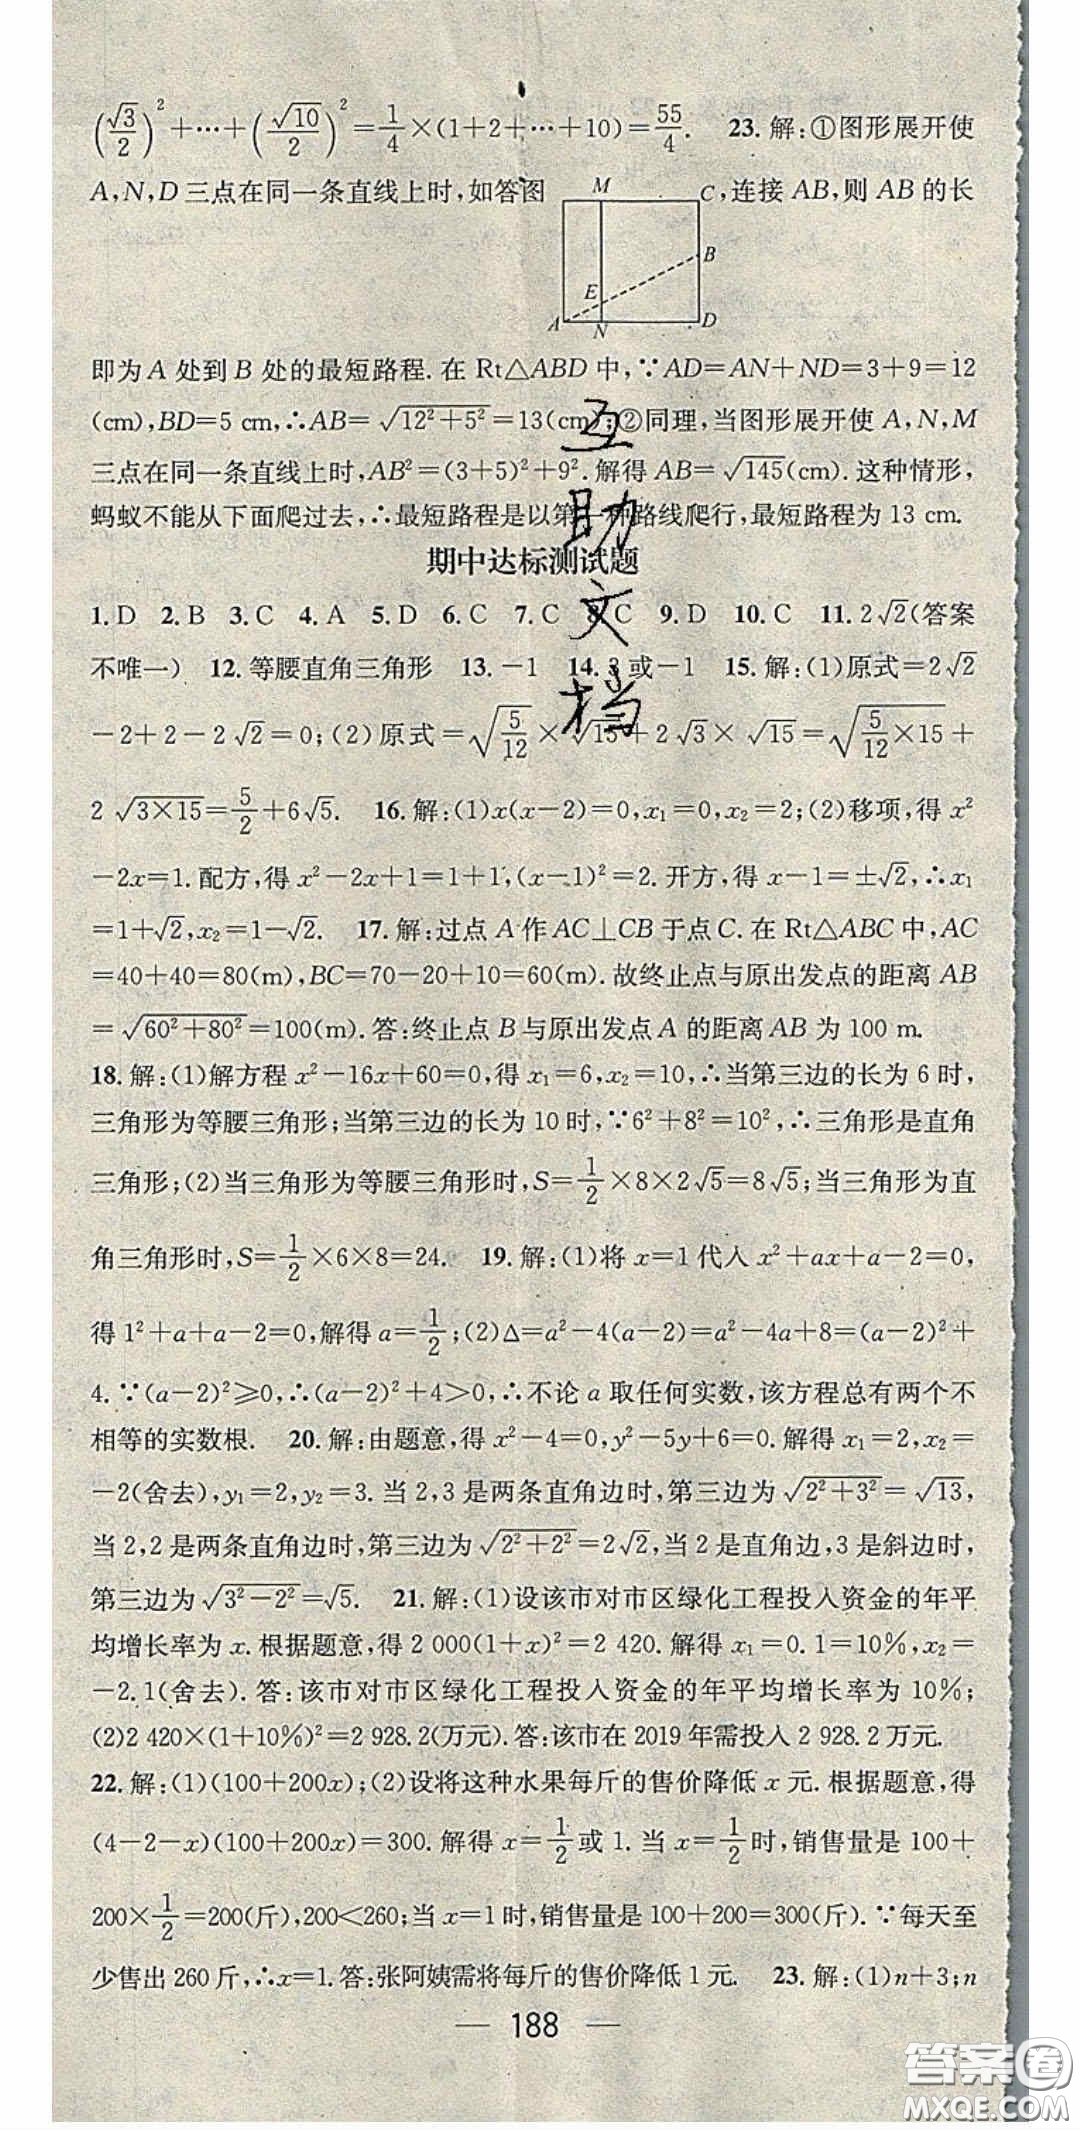 (√3/2)²+…+(√10/2)²=1/4×(1+2+…+10)=55/4. 23. 解:①图形展开使
A,N,D 三点在同一条直线上时,如答图
M
C
,连接 AB,则 AB 的长
B
E
A
N
D
即为 A 处到 B 处的最短路程. 在 Rt△ABD 中,∵AD=AN+ND=3+9=12
(cm),BD=5 cm,∴AB=√(12²+5²)=13(cm);②同理,当图形展开使 A,N,M
三点在同一条直线上时,AB²=(3+5)²+9². 解得 AB=√145(cm). 这种情形,
蚂蚁不能从下面爬过去,∴最短路程是以第一种路线爬行,最短路程为 13 cm.
期中达标测试题
1. D 2. B 3. C 4. A 5. D 6. C 7. C 8. C 9. D 10. C 11. 2√2(答案
不唯一) 12. 等腰直角三角形 13. －1 14. 3 或－1 15. 解:(1)原式=2√2
－2+2－2√2=0;(2)原式=√(5/12)×√15+2√3×√15=√(5/12×15)+
2√(3×15)=5/2+6√5. 16. 解:(1)x(x－2)=0,x₁=0,x₂=2;(2)移项,得 x²
－2x=1. 配方,得 x²－2x+1=1+1,(x－1)²=2. 开方,得 x－1=±√2,∴x₁
=1+√2,x₂=1－√2. 17. 解:过点 A 作 AC⊥CB 于点 C. 在 Rt△ABC 中,AC
=40+40=80(m),BC=70－20+10=60(m). 故终止点与原出发点的距离 AB
=√(60²+80²)=100(m). 答:终止点 B 与原出发点 A 的距离 AB 为 100 m.
18. 解:(1)解方程 x²－16x+60=0,得 x₁=6,x₂=10,∴当第三边的长为 6 时,
三角形为等腰三角形;当第三边的长为 10 时,∵6²+8²=10²,∴三角形是直角
三角形;(2)当三角形为等腰三角形时,S=1/2×8×2√5=8√5;当三角形为直
角三角形时,S=1/2×6×8=24. 19. 解:(1)将 x=1 代入 x²+ax+a－2=0,
得 1²+a+a－2=0,解得 a=1/2;(2)Δ=a²－4(a－2)=a²－4a+8=(a－2)²+
4. ∵(a－2)²≥0,∴(a－2)²+4>0,∴不论 a 取任何实数,该方程总有两个不
相等的实数根. 20. 解:由题意,得 x²－4=0,y²－5y+6=0. 解得 x₁=2,x₂=
－2(舍去),y₁=2,y₂=3. 当 2,3 是两条直角边时,第三边为√(2²+3²)=√13,
当 2,2 是两条直角边时,第三边为√(2²+2²)=2√2,当 2 是直角边,3 是斜边时,
第三边为√(3²－2²)=√5. 21. 解:(1)设该市对市区绿化工程投入资金的年平
均增长率为 x. 根据题意,得 2 000(1+x)²=2 420. 解得 x₁=0. 1=10%,x₂=
－2. 1(舍去). 答:该市对市区绿化工程投入资金的年平均增长率为 10%;
(2)2 420×(1+10%)²=2 928. 2(万元). 答:该市在 2019 年需投入 2 928. 2 万元.
22. 解:(1)(100+200x);(2)设将这种水果每斤的售价降低 x 元. 根据题意,得
(4－2－x)(100+200x)=300. 解得 x=1/2或 1. 当 x=1/2时,销售量是 100+
200×1/2=200(斤),200<260;当 x=1 时,销售量是 100+200=300(斤). ∵每天至
少售出 260 斤,∴x=1. 答:张阿姨需将每斤的售价降低 1 元. 23. 解:(1)n+3;n
— 188 —
互
助
文
档
答案圈
MXQE.COM